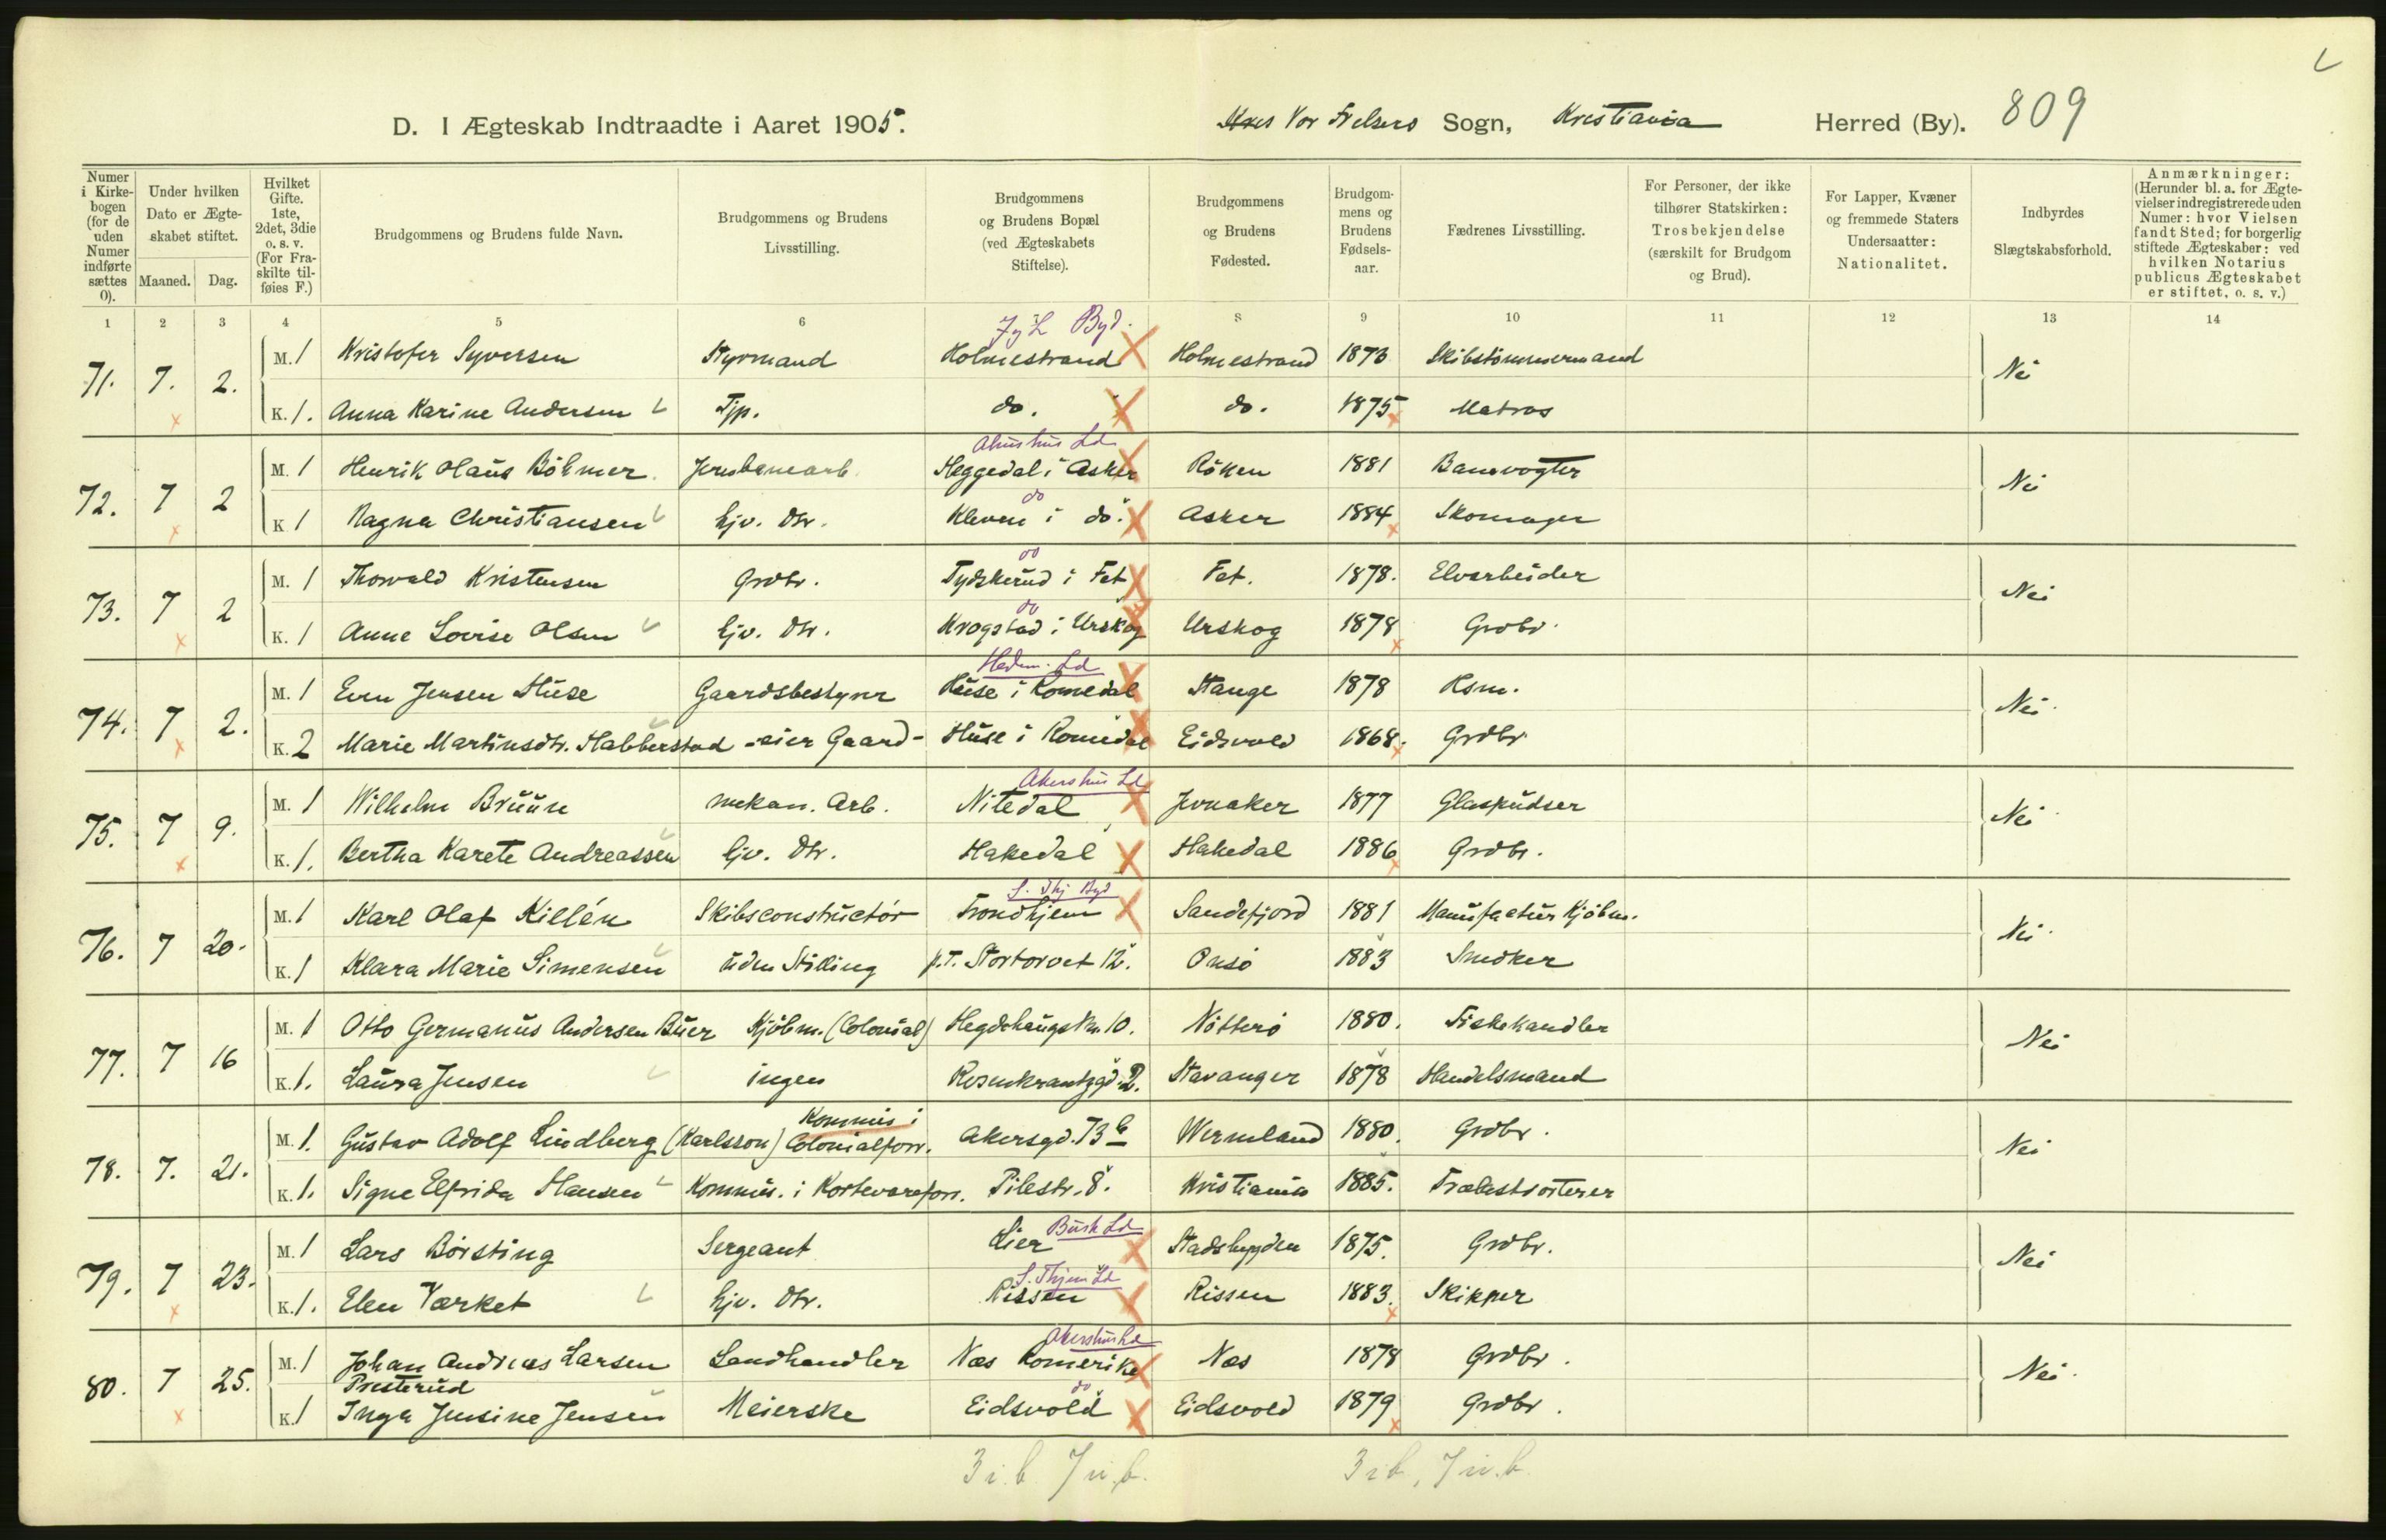 D. I Ægteskab Indtraadte i Aaret 1905. Vor Frelsers Sogn, Kristiania Herred (By). 809
Numer i Kirkebogen (for de uden Numer indførte sættes 0).
Under hvilken Dato er Ægteskabet stiftet.
Maaned. Dag.
Hvilket Gifte. 1ste, 2det, 3die o. s. v. (For Fraskilte tilføies F.)
Brudgommens og Brudens fulde Navn.
Brudgommens og Brudens Livsstilling.
Brudgommens og Brudens Bopæl (ved Ægteskabets Stiftelse).
Brudgommens og Brudens Fødested.
Brudgommens og Brudens Fødselsaar.
Fædrenes Livsstilling.
For Personer, der ikke tilhører Statskirken: Trosbekjendelse (særskilt for Brudgom og Brud).
For Lapper, Kvæner og fremmede Staters Undersaatter: Nationalitet.
Indbyrdes Slægtskabsforhold.
Anmærkninger: (Herunder bl. a. for Ægtevielser indregistrerede uden Numer: hvor Vielsen fandt Sted; for borgerlig stiftede Ægteskaber: ved hvilken Notarius publicus Ægteskabet er stiftet, o. s. v.)
1 2 3 4 5 6 8 9 10 11 12 13 14
J & L Byd.
71. 7. 2. M. 1 Kristofer Syversen Styrmand Holmestrand Holmestrand 1873 Skibstømmermand Nei
K. 1. Anna Karine Andersen Tjp. do. do. 1875 Matros
Akershus Ld
72. 7 2 M. 1 Henrik Olaus Böhmer. Jernbanearb. Heggedal i Asker Röken 1881 Banevogter Nei
do
K 1 Ragna Christiansen hjv. Dtr. Kleven i do. Asker 1884 Skomager
do
73. 7 2 M. 1 Thorvald Kristensen Grdbr. Tydskerud i Fet Fet. 1878. Elvarbeider Nei
do
K. 1 Anne Lovise Olsen hjv. Dtr. Krogstad i Urskog Urskog 1878 Grdbr.
Hedm. Ld
74. 7 2. M. 1 Even Jensen Huse Gaardsbestyrer Huse i Romedal Stange 1878 Hsm. Nei
K. 2 Marie Martinsdtr. Habberstad -eier Gaard- Huse i Romedal Eidsvold 1868. Grdbr
Akershus Ld
75. 7 9. M. 1 Wilhelm Bruun mekan. Arb. Nitedal Jevnaker 1877 Glaspudser Nei
K. 1. Bertha Karete Andreassen hjv. Dtr. Hakedal Hakedal 1886 Grdbr.
S. Thj Byd
76. 7 20. M. 1 Karl Olaf Killén Skibsconstructör Trondhjem Sandefjord 1881 Manufactur Kjöbm. Nei
K. 1 Klara Marie Simensen uden Stilling p.T. Stortorvet 12. Onsö 1883 Snedker
77. 7 16 M. 1 Otto Germanus Andersen Buer Kjöbm. (Colonial) Hegdehaugsvn. 10. Nötterö 1880. Fiskehandler Nei
K. 1. Laura Jensen ingen Rosenkrantzgd. 2. Stavanger 1878 Handelsmand
Kommis i
78. 7. 21. M. 1. Gustav Adolf Lindberg (Karlsson) Colonialforr. Akersgd. 73 b Wermland 1880. Grdbr. Nei
K. 1. Signe Elfrida Hansen Kommis. i Kortevareforr. Pilestr. 8. Kristiania 1885. Trælastsorterer
Busk Ld
79. 7 23. M. 1 Lars Börsting Sergeant Lier Stadsbygden 1875. Grdbr. Nei
S. Thjem Ld
K. 1. Elen Værket hjv. Dtr. Rissen Rissen 1883. Skipper
Akershus Ld
80. 7 25. M. 1 Johan Andreas Larsen Landhandler Næs Romerike Næs 1878 Grdbr. Nei.
Presterud
do
K. 1 Inga Jensine Jensen Meierske Eidsvold Eidsvold 1879 Grdbr.
3 i.b. 7 u.b. 3 i.b. 7 u.b.